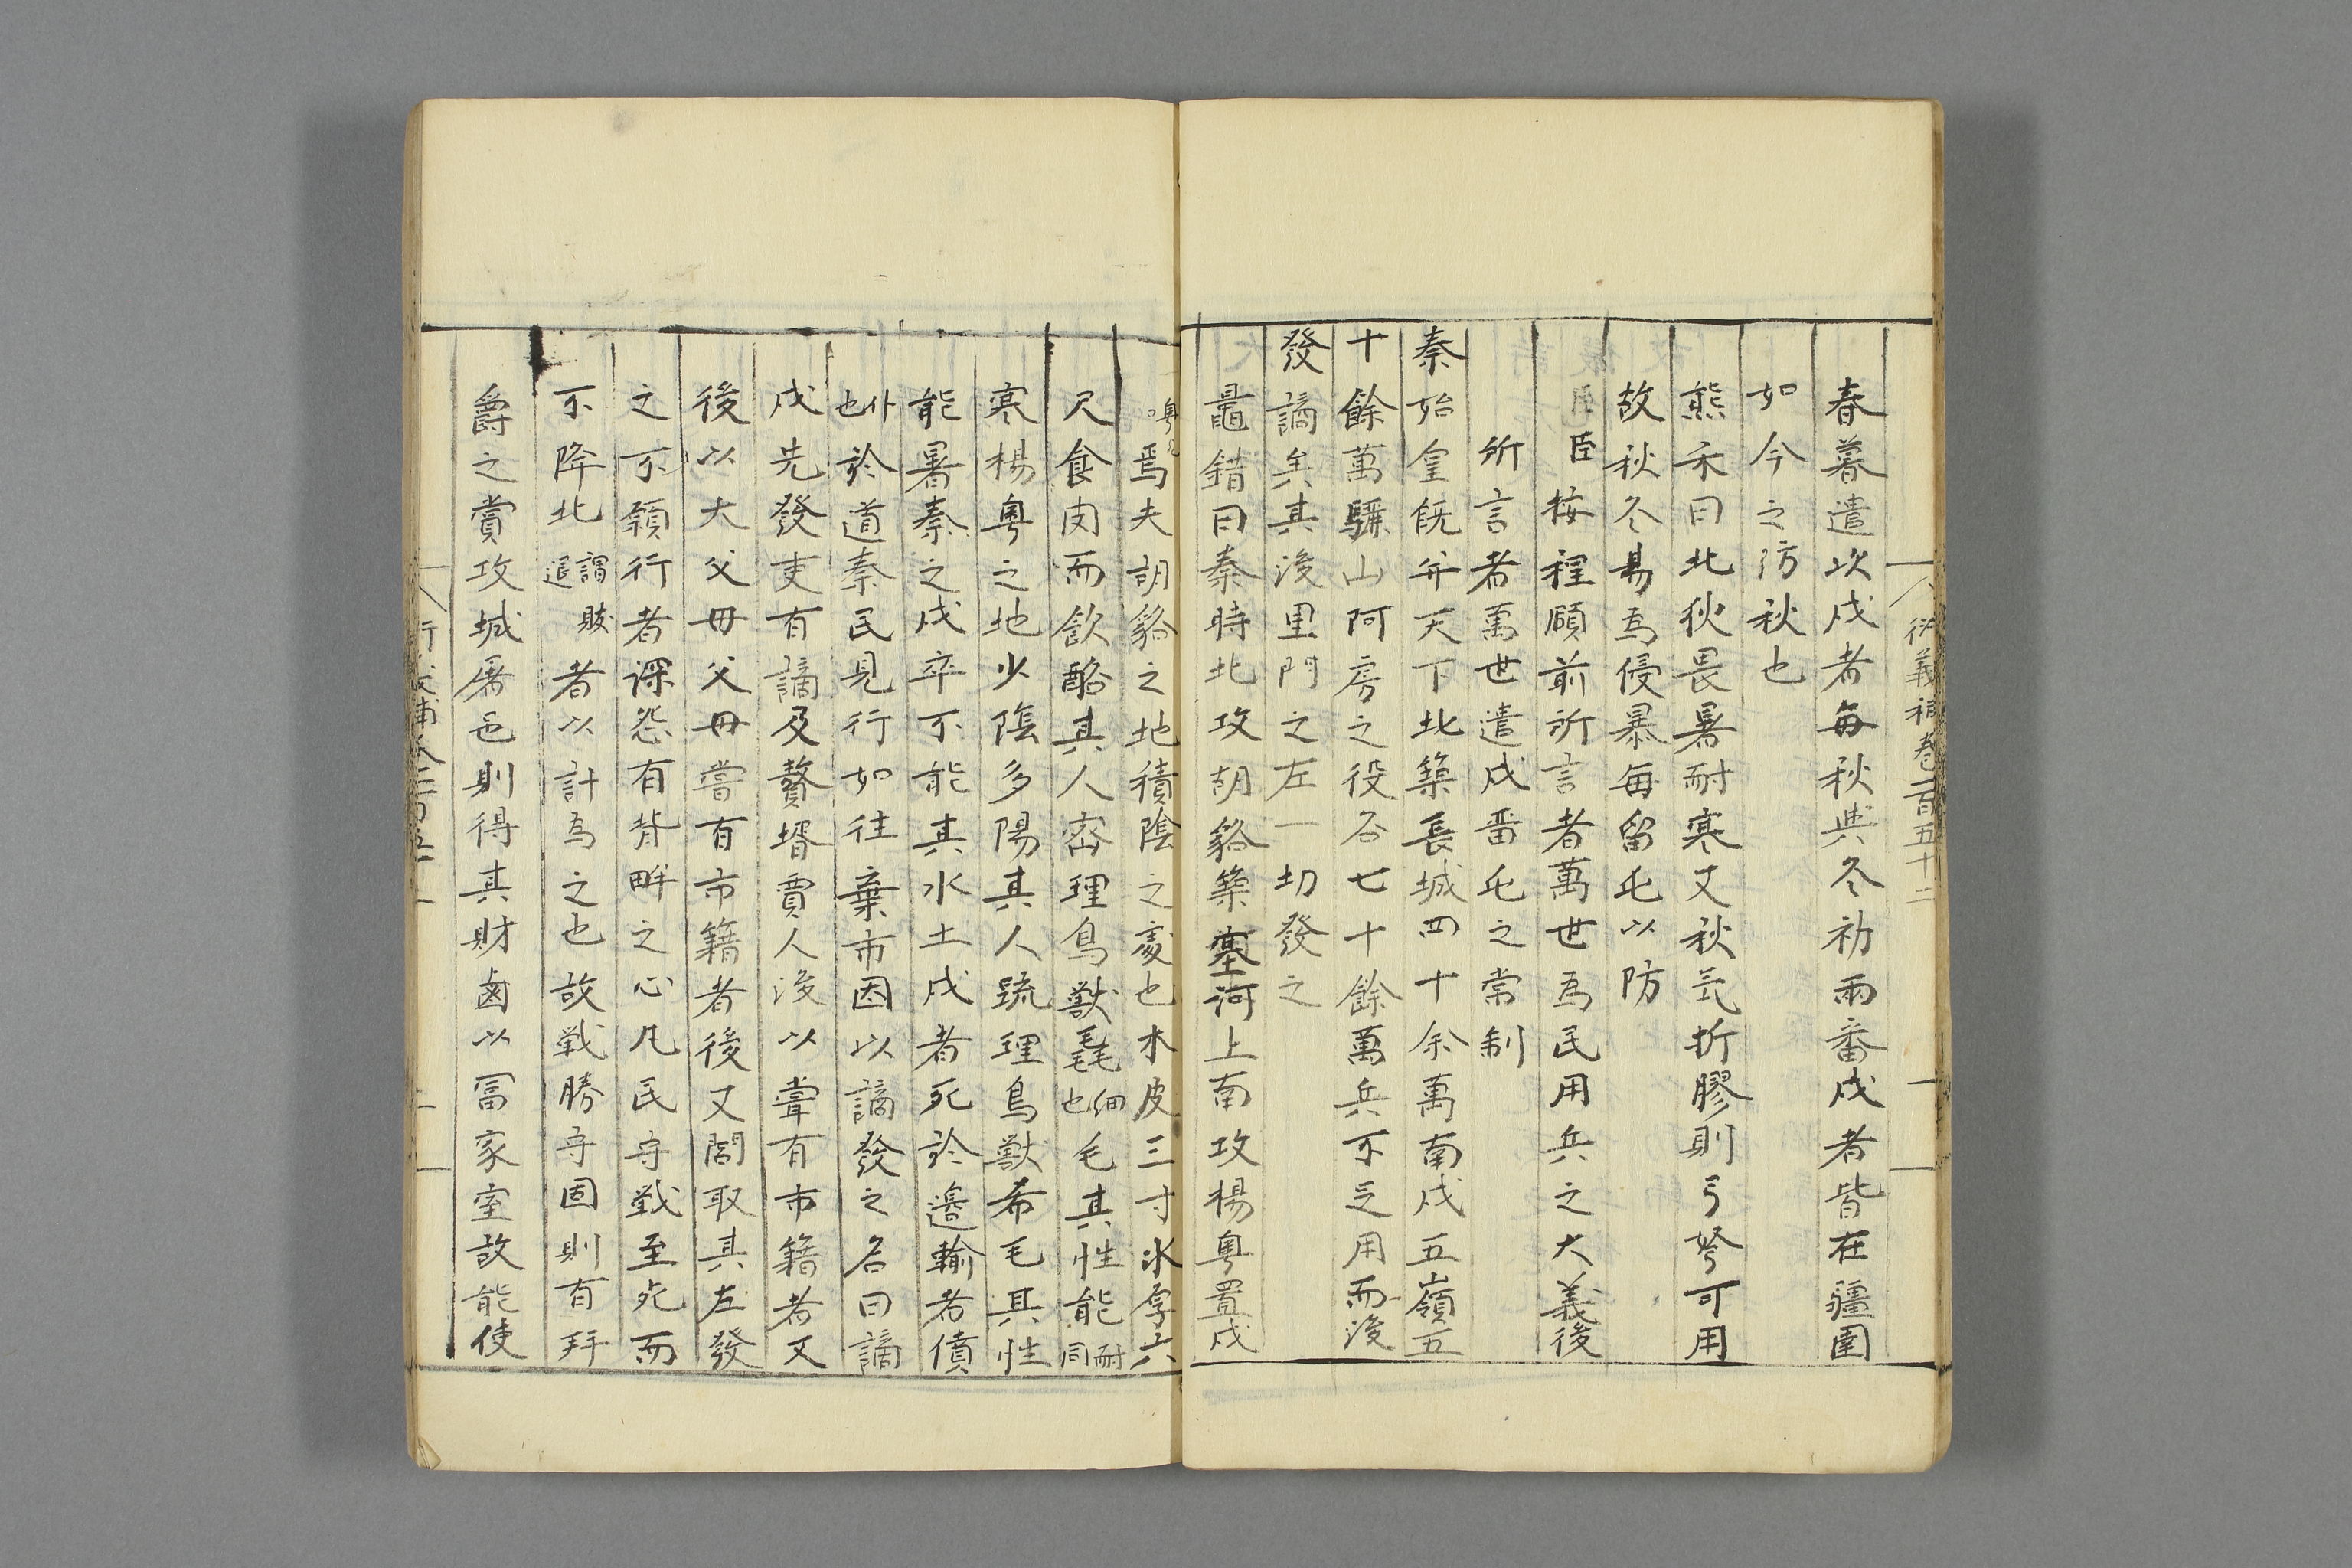 衍義補卷一百五十二
春暮遣次戍者每秋與冬初兩番戍者皆在疆圉
如今之防秋也
熊禾曰北狄畏暑耐寒又秋氣折膠則弓弩可用
故秋冬易為侵暴每留屯以防
臣按程頤前所言者萬世為民用兵之大義後
所言者萬世遣戍番屯之常制
秦始皇既并天下北築長城四十余萬南戍五嶺五
十餘萬驪山阿房之役各七十餘萬兵不乏用而後
發謫兵其後里門之左一切發之
鼂錯曰秦時北攻胡貉築塞河上南攻楊粵置戍
焉夫胡貉之地積陰之處也木皮三寸氷厚六
尺食肉而飲酪其人密理鳥獸毳細也毛其性能耐同
寒楊粵之地少陰多陽其人䟽理鳥獸希毛其性
能暑秦之戍卒不能其水土戍者死於邉輸者僨
仆也於道秦民見行如往棄市因以謫發之名曰謫
戍先發吏有謫及贅壻賈人後以甞有市籍者又
後以大父毋父毋嘗有市籍者後又閭取其左發
之不願行者深怨有背畔之心凡民守戰至死而
不降北謂敗退者以計為之也故戰勝守固則有拜
爵之賞攻城屠邑則得其財鹵以富家室故能使